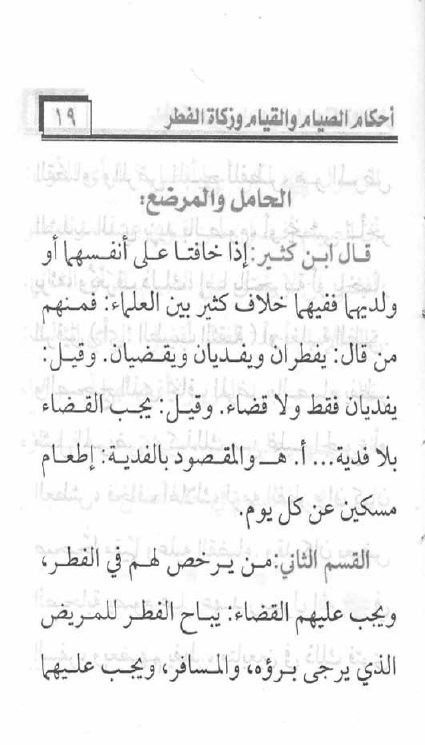 أحكام الصيام والقيام وزكاة الفطر
١٩
الحامل والمرضع:
قال ابن كثير: إذا خافتا على أنفسهما أو
ولديهما ففيهما خلاف كثير بين العلماء: فمنهم
من قال: يفطران ويفديان ويقضيان. وقيل:
يفديان فقط ولا قضاء. وقيل: يجب القضاء
بلا فدية... أ. هـ والمقصود بالفدية: إطعام
مسكين عن كل يوم.
القسم الثاني: من يرخص لهم في الفطر،
ويجب عليهم القضاء: يباح الفطر للمريض
الذي يرجى برؤه، والمسافر، ويجب عليهما